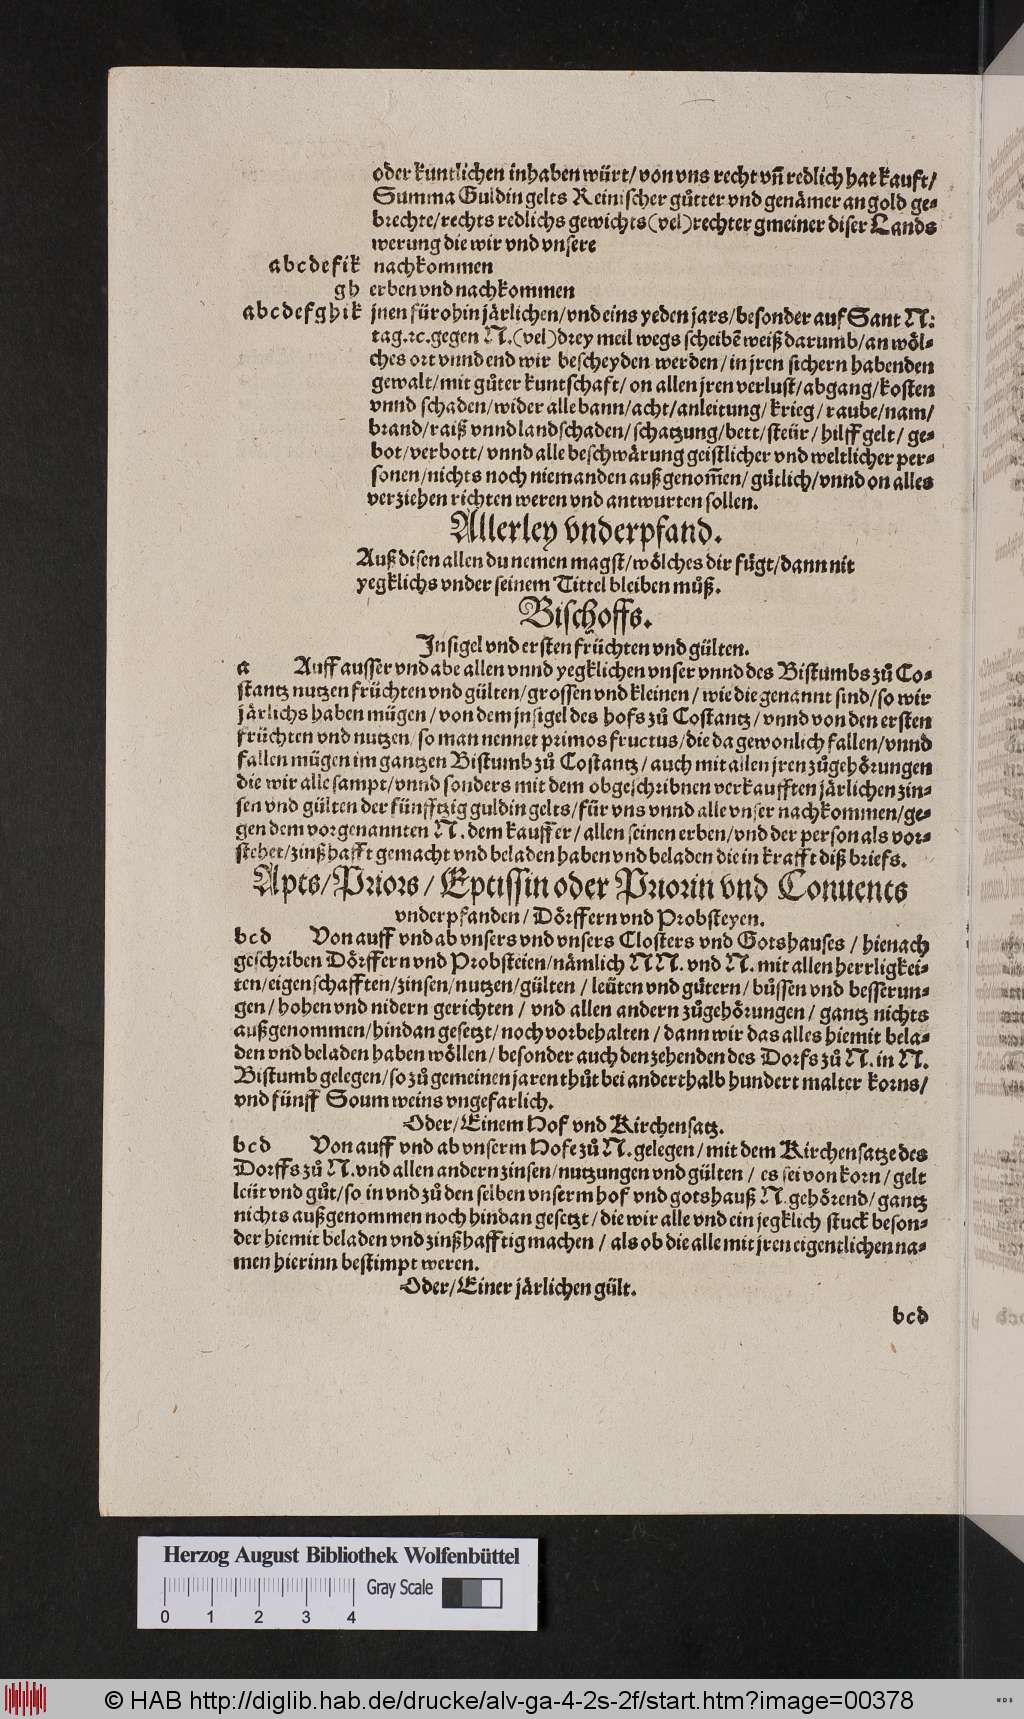 oder kuntlichen inhaben würt/ von vns recht vñ redlich hat kauft/
Summa Guldin gelts Reinischer gůtter vnd genämer an gold ge-
brechte/rechts redlichs gewichts(vel)rechter gmeiner diser Lands
werung die wir vnd vnsere
a b c d e f i k nachkommen
g h erben vnd nachkommen
a b c d e f g h i k jnen fürohin järlichen/vnd eins yeden jars/besonder auf Sant N:
tag.ꝛc.gegen N.(vel)drey meil wegs scheibẽ weiß darumb/an wöl-
ches ort vnnd end wir bescheyden werden/in jren sichern habenden
gewalt/mit gůter kuntschaft/ on allen jren verlust/abgang/kosten
vnnd schaden/wider alle bann/acht/anleitung/krieg/raube/nam/
brand/raiß vnnd landschaden/schatzung/bett/steür/hilff gelt/ ge-
bot/verbott/ vnnd alle beschwärung geistlicher vnd weltlicher per-
sonen/nichts noch niemanden außgenom̃en/gütlich/vnnd on alles
verziehen richten weren vnd antwurten sollen.
Allerley vnderpfand.
Auß disen allen du nemen magst/wölches dir fügt/dann nit
yegklichs vnder seinem Tittel bleiben můß.
Bischoffs.
Jnsigel vnd ersten früchten vnd gülten.
a Auff ausser vnd abe allen vnnd yegklichen vnser vnnd des Bistumbs zů Co-
stantz nutzen früchten vnd gülten/grossen vnd kleinen/wie die genannt sind/so wir
järlichs haben mügen/von dem jnsigel des hofs zů Costantz/vnnd von den ersten
früchten vnd nutzen/so man nennet primos fructus/die da gewonlich fallen/vnnd
fallen mügen im gantzen Bistumb zů Costantz/auch mit allen jren zůgehörungen
die wir alle sampt/vnnd sonders mit dem obgeschribnen verkaufften järlichen zin-
sen vnd gülten der fünfftzig guldin gelts/für vns vnnd alle vnser nachkommen/ge-
gen dem vorgenannten N. dem kauffer/allen seinen erben/vnd der person als vor-
stehet/zinßhafft gemacht vnd beladen haben vnd beladen die in krafft diß briefs.
Apts/Priors/Eptissin oder Priorin vnd Conuents
vnderpfanden/Dörffern vnd Probsteyen.
b c d Von auff vnd ab vnsers vnd vnsers Closters vnd Gotshauses/hienach
geschriben Dörffern vnd Probsteien/nämlich NN. vnd N. mit allen herrligkei-
ten/eigenschafften/zinsen/nutzen/gülten/leüten vnd gůtern/bůssen vnd besserun-
gen/hohen vnd nidern gerichten/vnd allen andern zůgehörungen/gantz nichts
außgenommen/hindan gesetzt/noch vorbehalten/dann wir das alles hiemit bela-
den vnd beladen haben wöllen/besonder auch den zehenden des Dorfs zů N. in N.
Bistumb gelegen/so zů gemeinen jaren thůt bei anderthalb hundert malter korns/
vnd fünff Soum weins vngefarlich.
Oder/Einem Hof vnd Kirchensatz.
b c d Von auff vnd ab vnserm Hofe zů N. gelegen/mit dem Kirchensatze des
Dorffs zů N. vnd allen andern zinsen/nutzungen vnd gülten/es sei von korn/gelt
leüt vnd gůt/so in vnd zů den selben vnserm hof vnd gotshauß N. gehörend/gantz
nichts außgenommen noch hindan gesetzt/die wir alle vnd ein jegklich stuck beson-
der hiemit beladen vnd zinßhafftig machen/als ob die alle mit jren eigentlichen na-
men hierinn bestimpt weren.
Oder/Einer järlichen gült.
b c d
Herzog August Bibliothek Wolfenbüttel
Gray Scale
0 1 2 3 4
© HAB http://diglib.hab.de/drucke/alv-ga-4-2s-2f/start.htm?image=00378